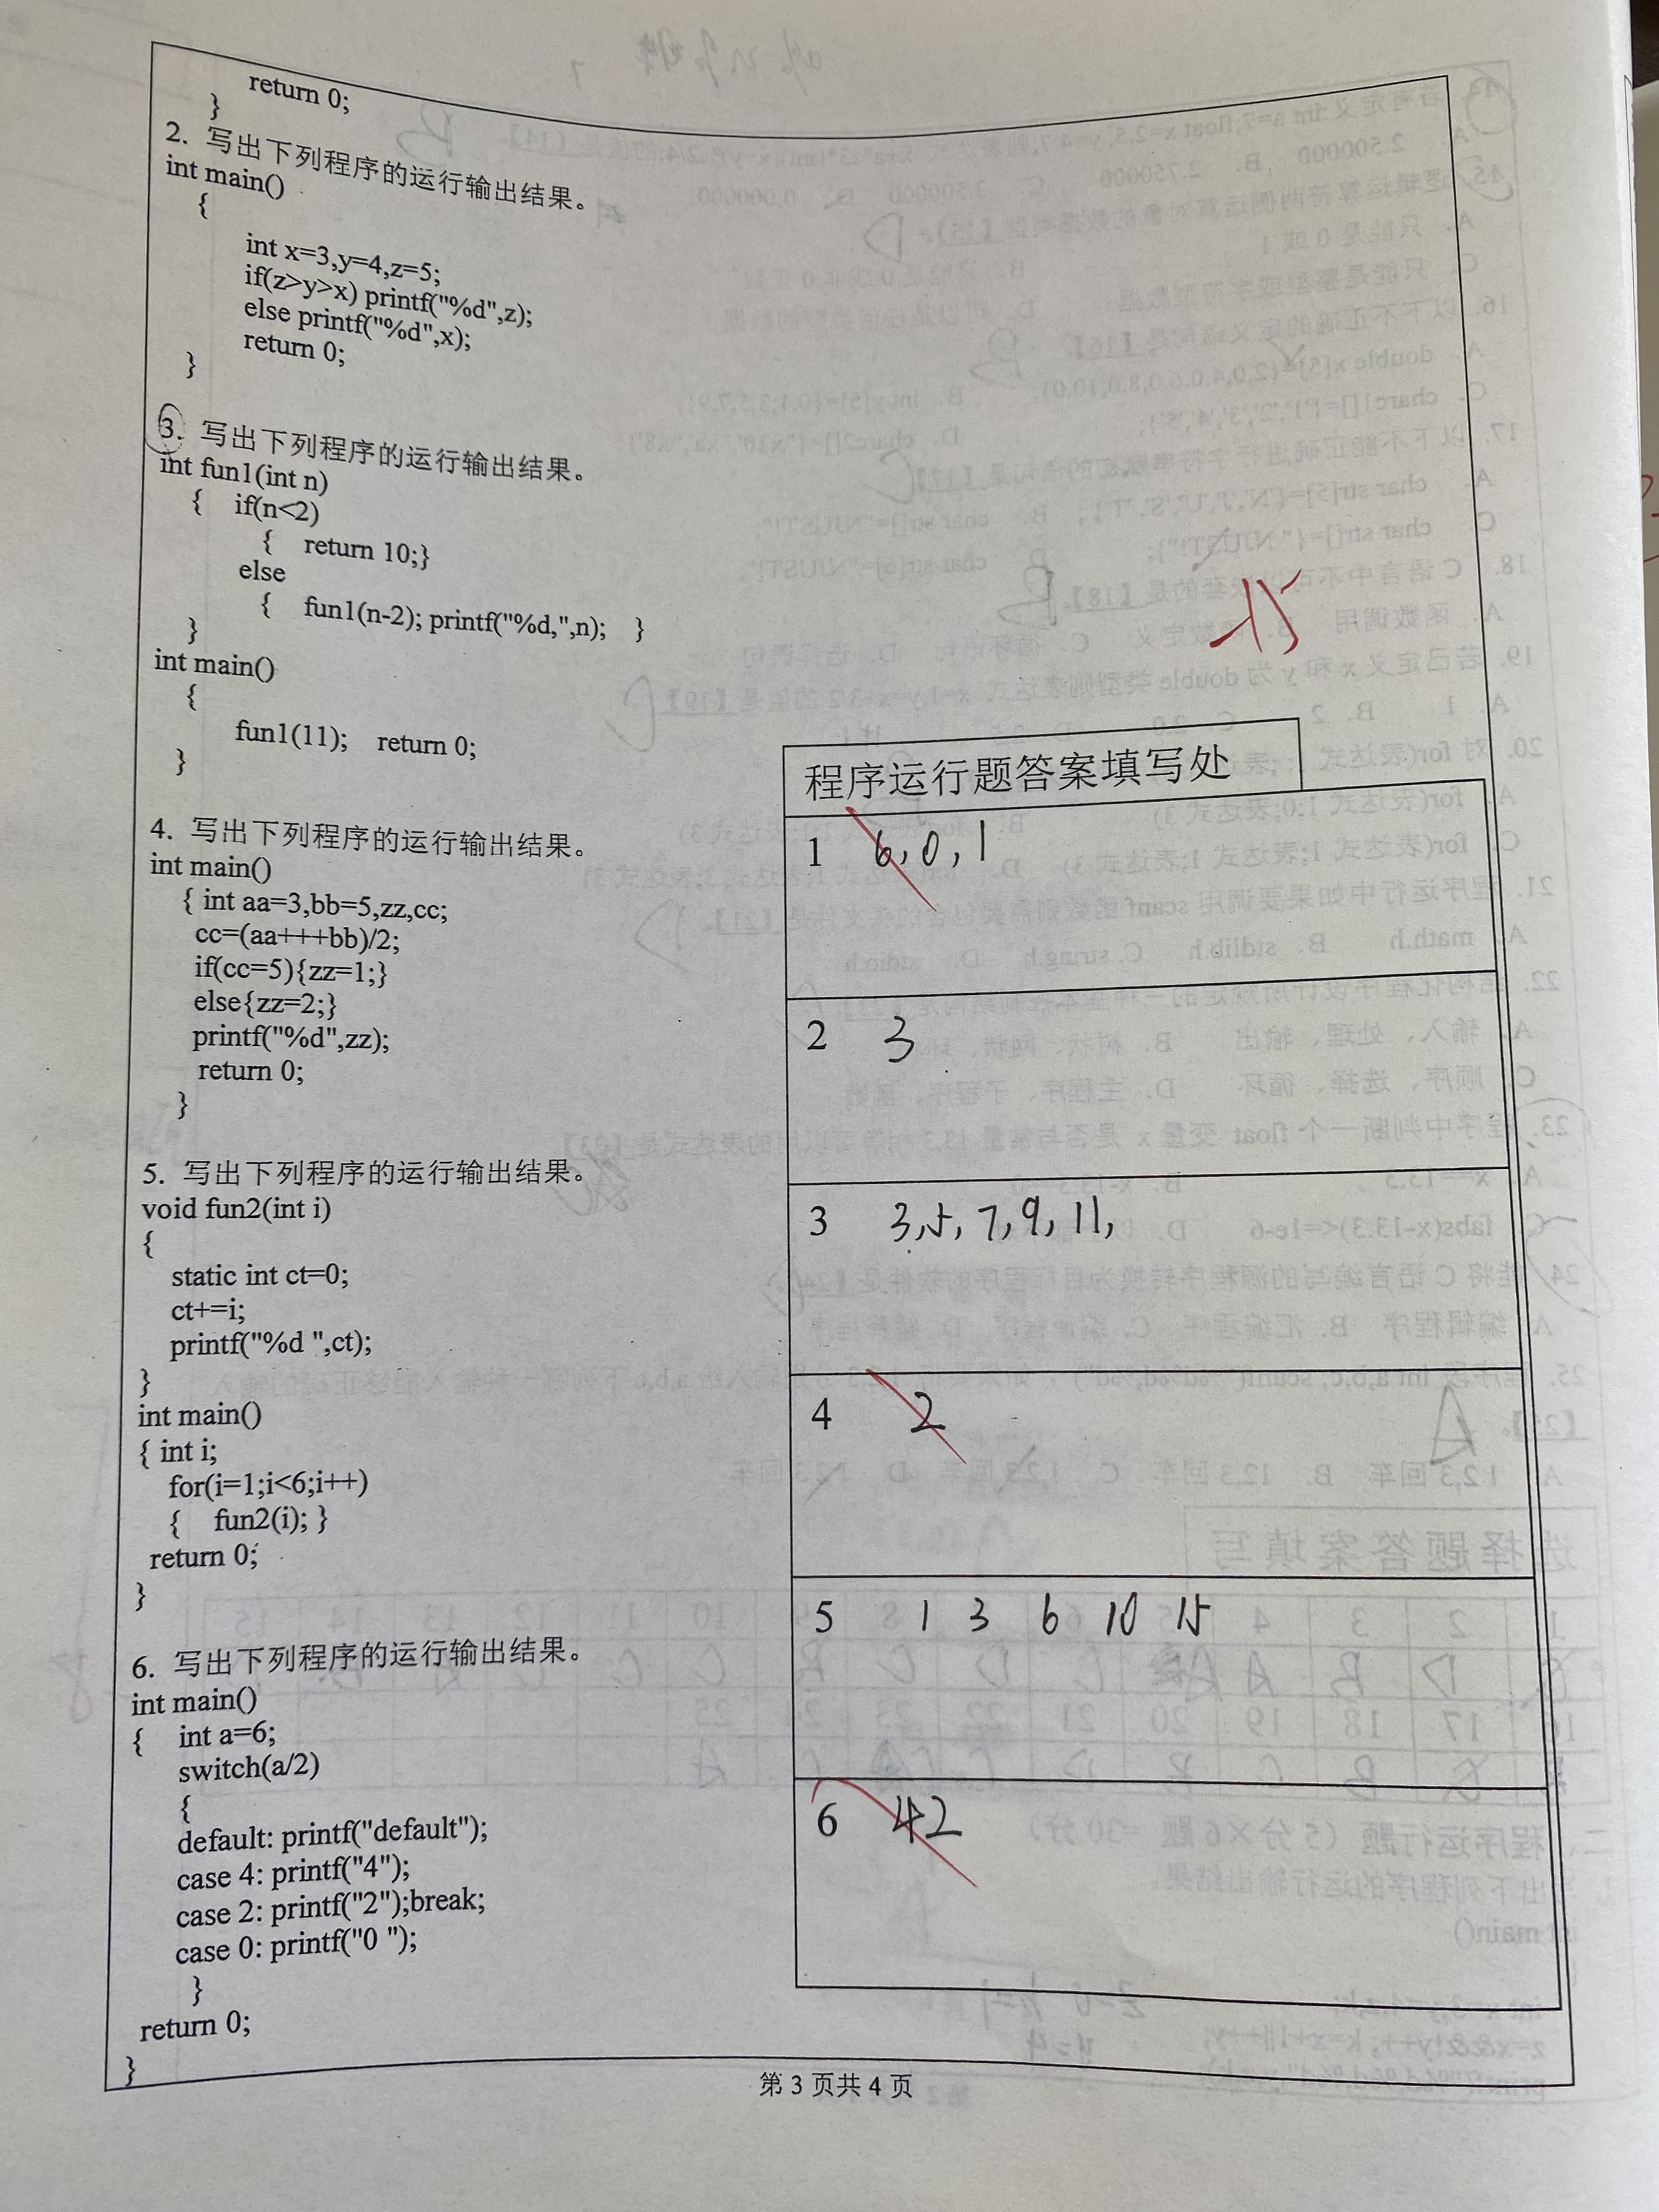 return 0;
}
2. 写出下列程序的运行输出结果。
int main()
{
int x=3,y=4,z=5;
if(z>y>x) printf("%d",z);
else printf("%d",x);
return 0;
}
3. 写出下列程序的运行输出结果。
int fun1(int n)
{ if(n<2)
{ return 10;}
else
{ fun1(n-2); printf("%d,",n); }
}
int main()
{
fun1(11); return 0;
}
4. 写出下列程序的运行输出结果。
int main()
{ int aa=3,bb=5,zz,cc;
cc=(aa+++bb)/2;
if(cc=5){zz=1;}
else{zz=2;}
printf("%d",zz);
return 0;
}
5. 写出下列程序的运行输出结果。
void fun2(int i)
{
static int ct=0;
ct+=i;
printf("%d ",ct);
}
int main()
{ int i;
for(i=1;i<6;i++)
{ fun2(i); }
return 0;
}
6. 写出下列程序的运行输出结果。
int main()
{ int a=6;
switch(a/2)
{
default: printf("default");
case 4: printf("4");
case 2: printf("2");break;
case 0: printf("0 ");
}
return 0;
}
-15
程序运行题答案填写处
1 6,0,1
2 3
3 3,5,7,9,11,
4 2
5 1 3 6 10 15
6 42
第 3 页共 4 页